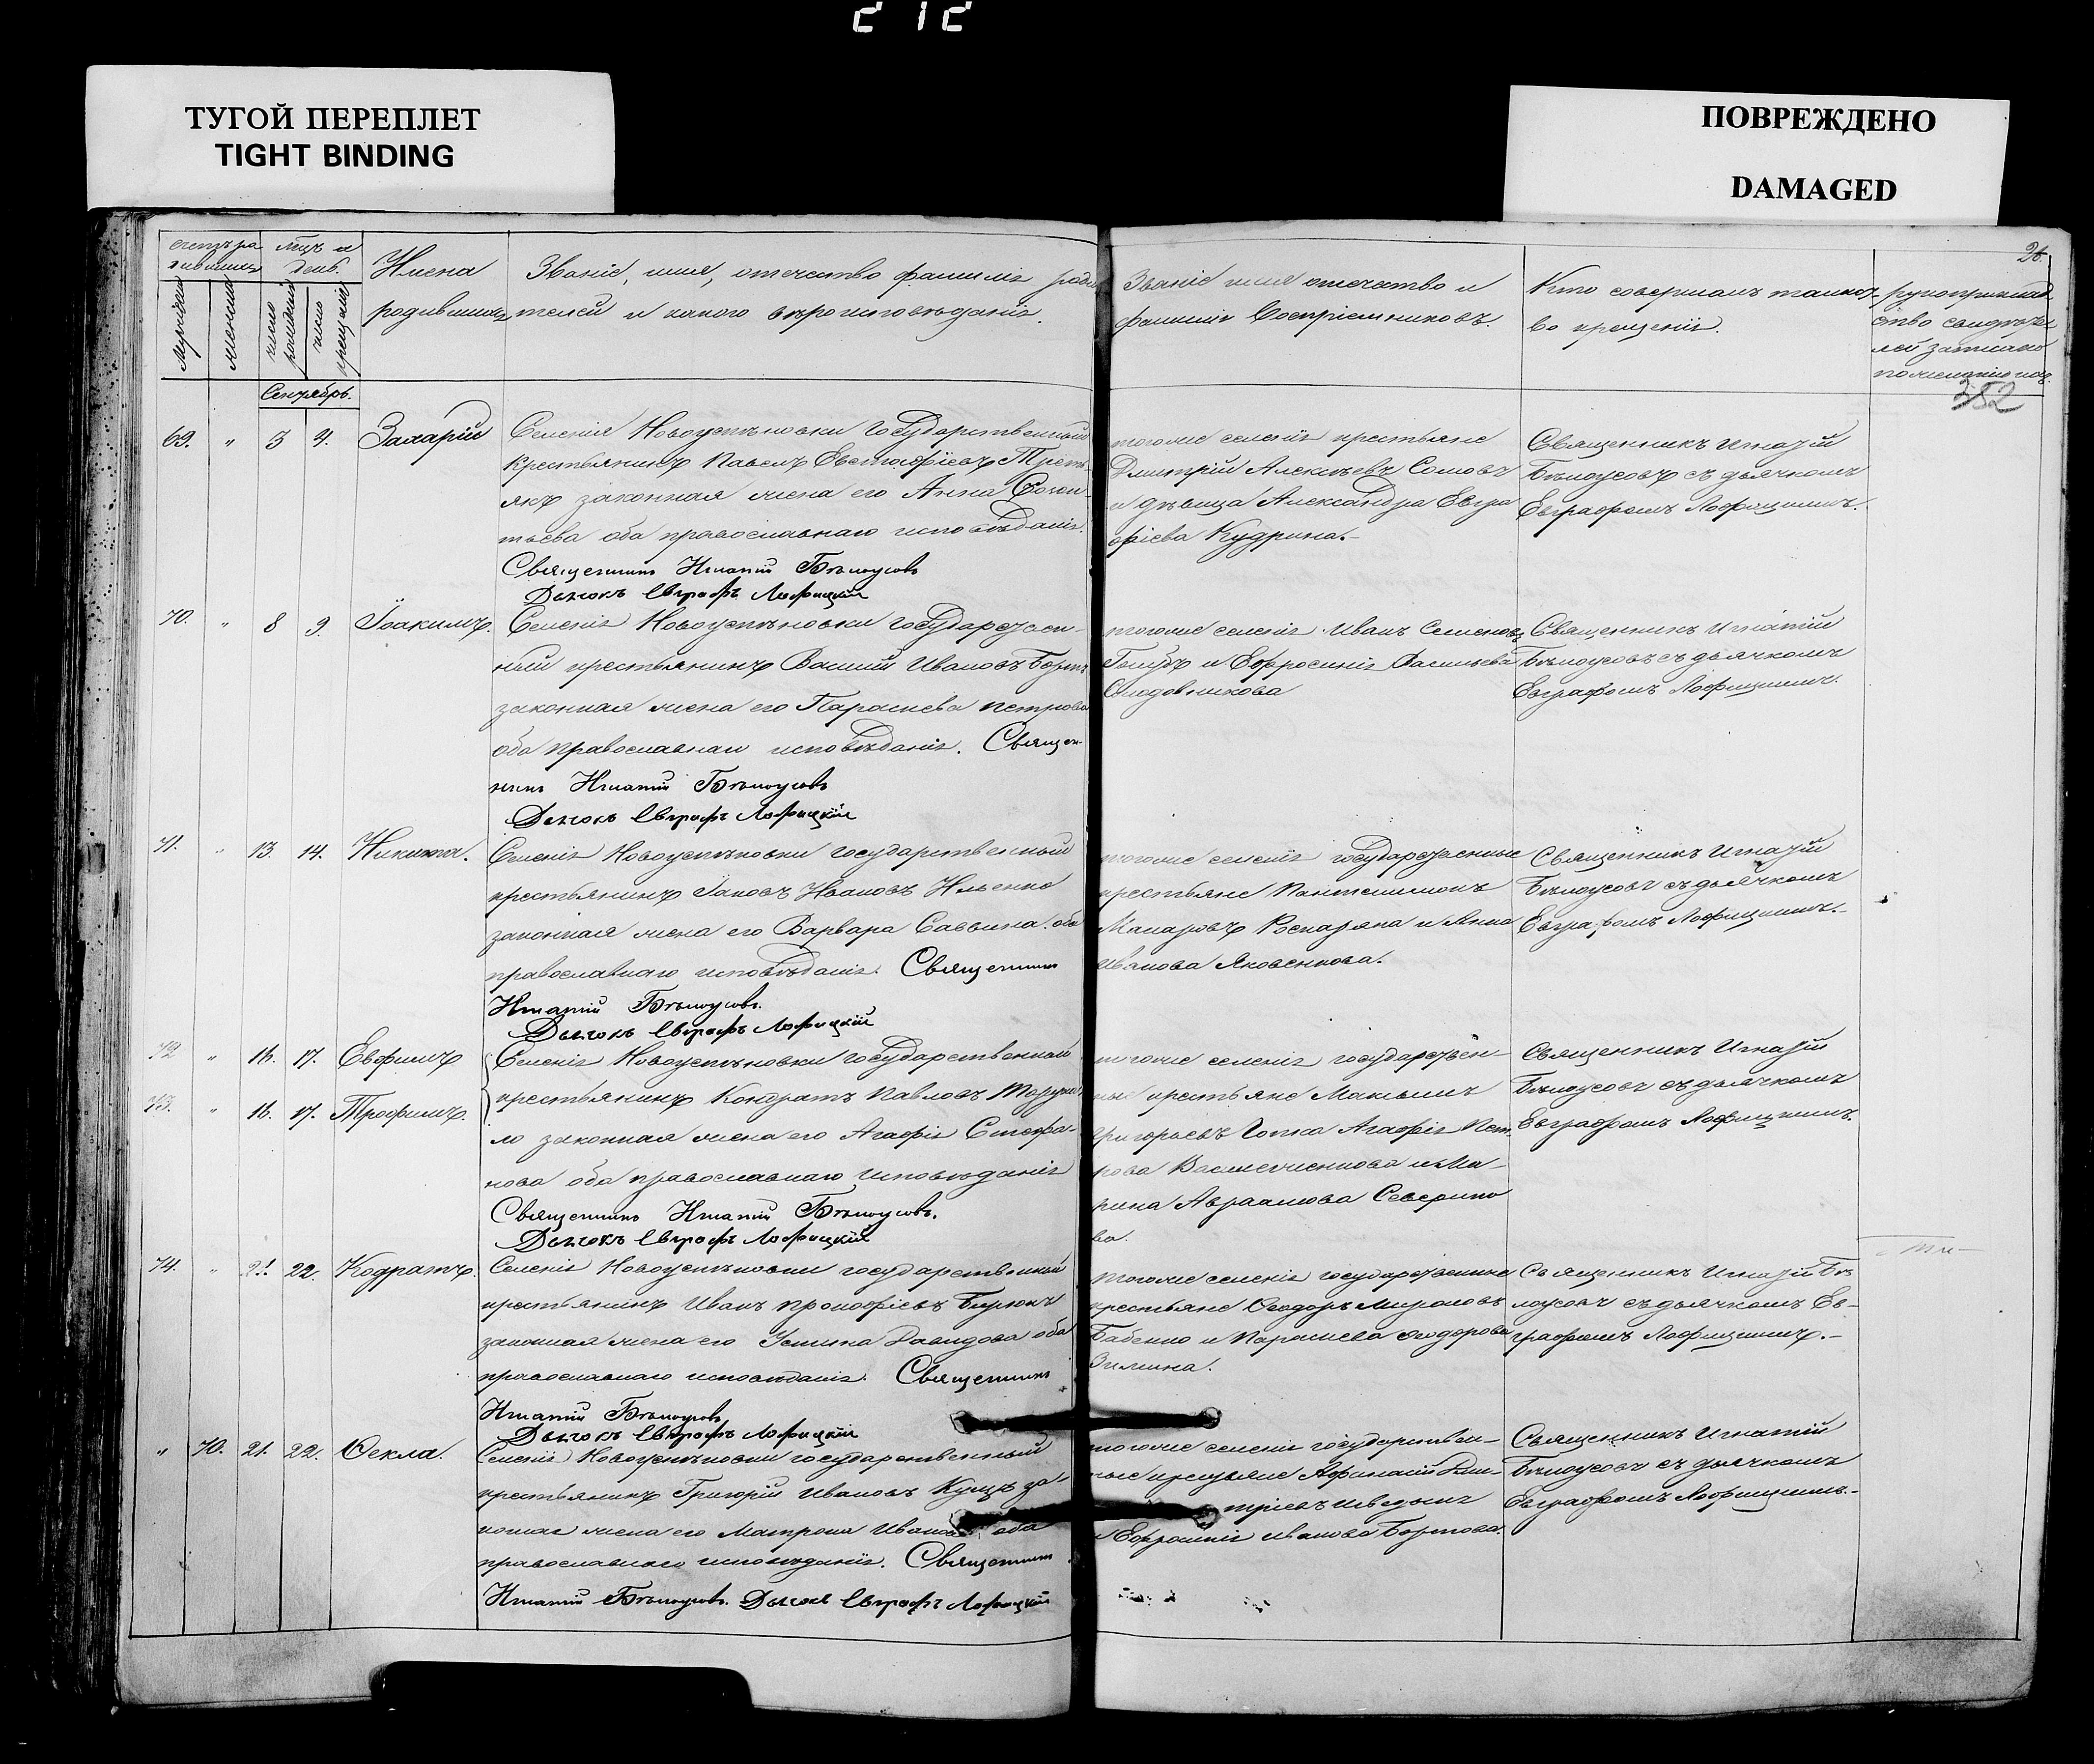 212
ТУГОЙ ПЕРЕПЛЕТ
TIGHT BINDING
ПОВРЕЖДЕНО
DAMAGED
26.
352
счетъ ро
дившихся
мужеска
женска
мѣц. и
день.
число
рожденія
число
крещенія
Имена
родившихся
Званіе, имя, отечество фамилія роди
телей и какого вѣроисповѣданія.
Званіе имя отечество и
фамилія Воспріемниковъ.
Кто совершалъ таинст
во крещенія.
рукоприклад
ство свидѣте
лей записано
по желанію
Сентябрь.
69. " 5 9. Захарій
Селенія Новоуспѣновки Государственный
Крестьянинъ Павелъ Евстафіевъ Треть
якъ законная жена его Анна
тьева оба православнаго исповѣданія.
Священникъ Игнатій Бѣлоусовъ
Дьячокъ Евграфъ Лофицкій
тогоже селенія крестьяне
Дмитрій Алексѣевъ Сомовъ
и дѣвица Александра Евгра
фіева Кудрина.
Священникъ Игнатій
Бѣлоусовъ съ дьячкомъ
Евграфомъ Лофицкимъ.
70. " 8 9. Іоакимъ.
Селенія Новоуспѣновки государствен-
ный крестьянинъ Василій Ивановъ
законная жена его Параскева Петрова
оба православнаго исповѣданія. Священ-
никъ Игнатій Бѣлоусовъ
Дьячокъ Евграфъ Лофицкій
тогоже селенія Иванъ Семеновъ
Голубъ и Ефросинія Васильева
Священникъ Игнатій
Бѣлоусовъ съ дьячкомъ
Евграфомъ Лофицкимъ.
71. " 13. 14. Никита.
Селенія Новоуспѣновки государственный
крестьянинъ Іаковъ Ивановъ Ильенко
законная жена его Варвара Саввина оба
православнаго исповѣданія. Священникъ
Игнатій Бѣлоусовъ.
Дьячокъ Евграфъ Лофицкій
тогоже селенія государственные
крестьяне Пантелимонъ
Макаровъ и Анна
Иванова Яковенкова.
Священникъ Игнатій
Бѣлоусовъ съ дьячкомъ
Евграфомъ Лофицкимъ.
72 " 16. 17. Евфимъ
73. " 16. 17. Трофимъ.
Селенія Новоуспѣновки государственный
крестьянинъ Кондратъ Павловъ
ло законная жена его Агафія Стефа-
нова оба православнаго исповѣданія
Священникъ Игнатій Бѣлоусовъ.
Дьячокъ Евграфъ Лофицкій
тогоже селенія государствен-
ные крестьяне Максимъ
Григорьевъ Агафія Пет-
рова и Ма-
рина Авраамова Северино
ва.
Священникъ Игнатій
Бѣлоусовъ съ дьячкомъ
Евграфомъ Лофицкимъ.
74. " 21. 22. Кодратъ.
Селенія Новоуспѣновки государственный
крестьянинъ Иванъ Прокофіевъ Бирюкъ
законная жена его Устина Давидова оба
православнаго исповѣданія. Священникъ
Игнатій Бѣлоусовъ
Дьячокъ Евграфъ Лофицкій
тогоже селенія государственные
крестьяне Ѳеодоръ Мироновъ
Бабенко и Параскева Ѳеодорова
Зимина.
Священникъ Игнатій Бѣ
лоусовъ съ дьячкомъ Ев-
графомъ Лофицкимъ.
" 70. 21. 22. Ѳекла.
Селенія Новоуспѣновки государственный
крестьянинъ Григорій Ивановъ за
конная жена его Матрона Иванова оба
православнаго исповѣданія. Священникъ
Игнатій Бѣлоусовъ. Дьячокъ Евграфъ Лофицкій
тогоже селенія государствен-
ные крестьяне Афанасій Дми-
тріевъ
и Ефросинія Иванова
Священникъ Игнатій
Бѣлоусовъ съ дьячкомъ
Евграфомъ Лофицкимъ.